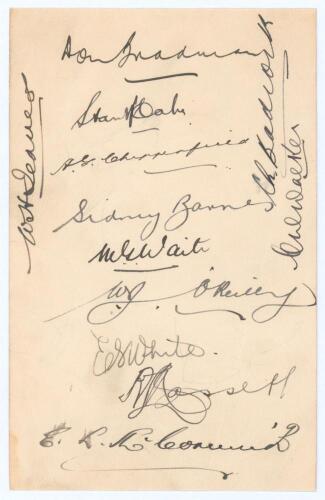 Don Bradman
Stan McCabe
A.G. Chipperfield
Sidney Barnes
M.G. Waite
W.J. O'Reilly
E.S. White
E. L. McCormick
C. L. Badcock
C.W. Walker